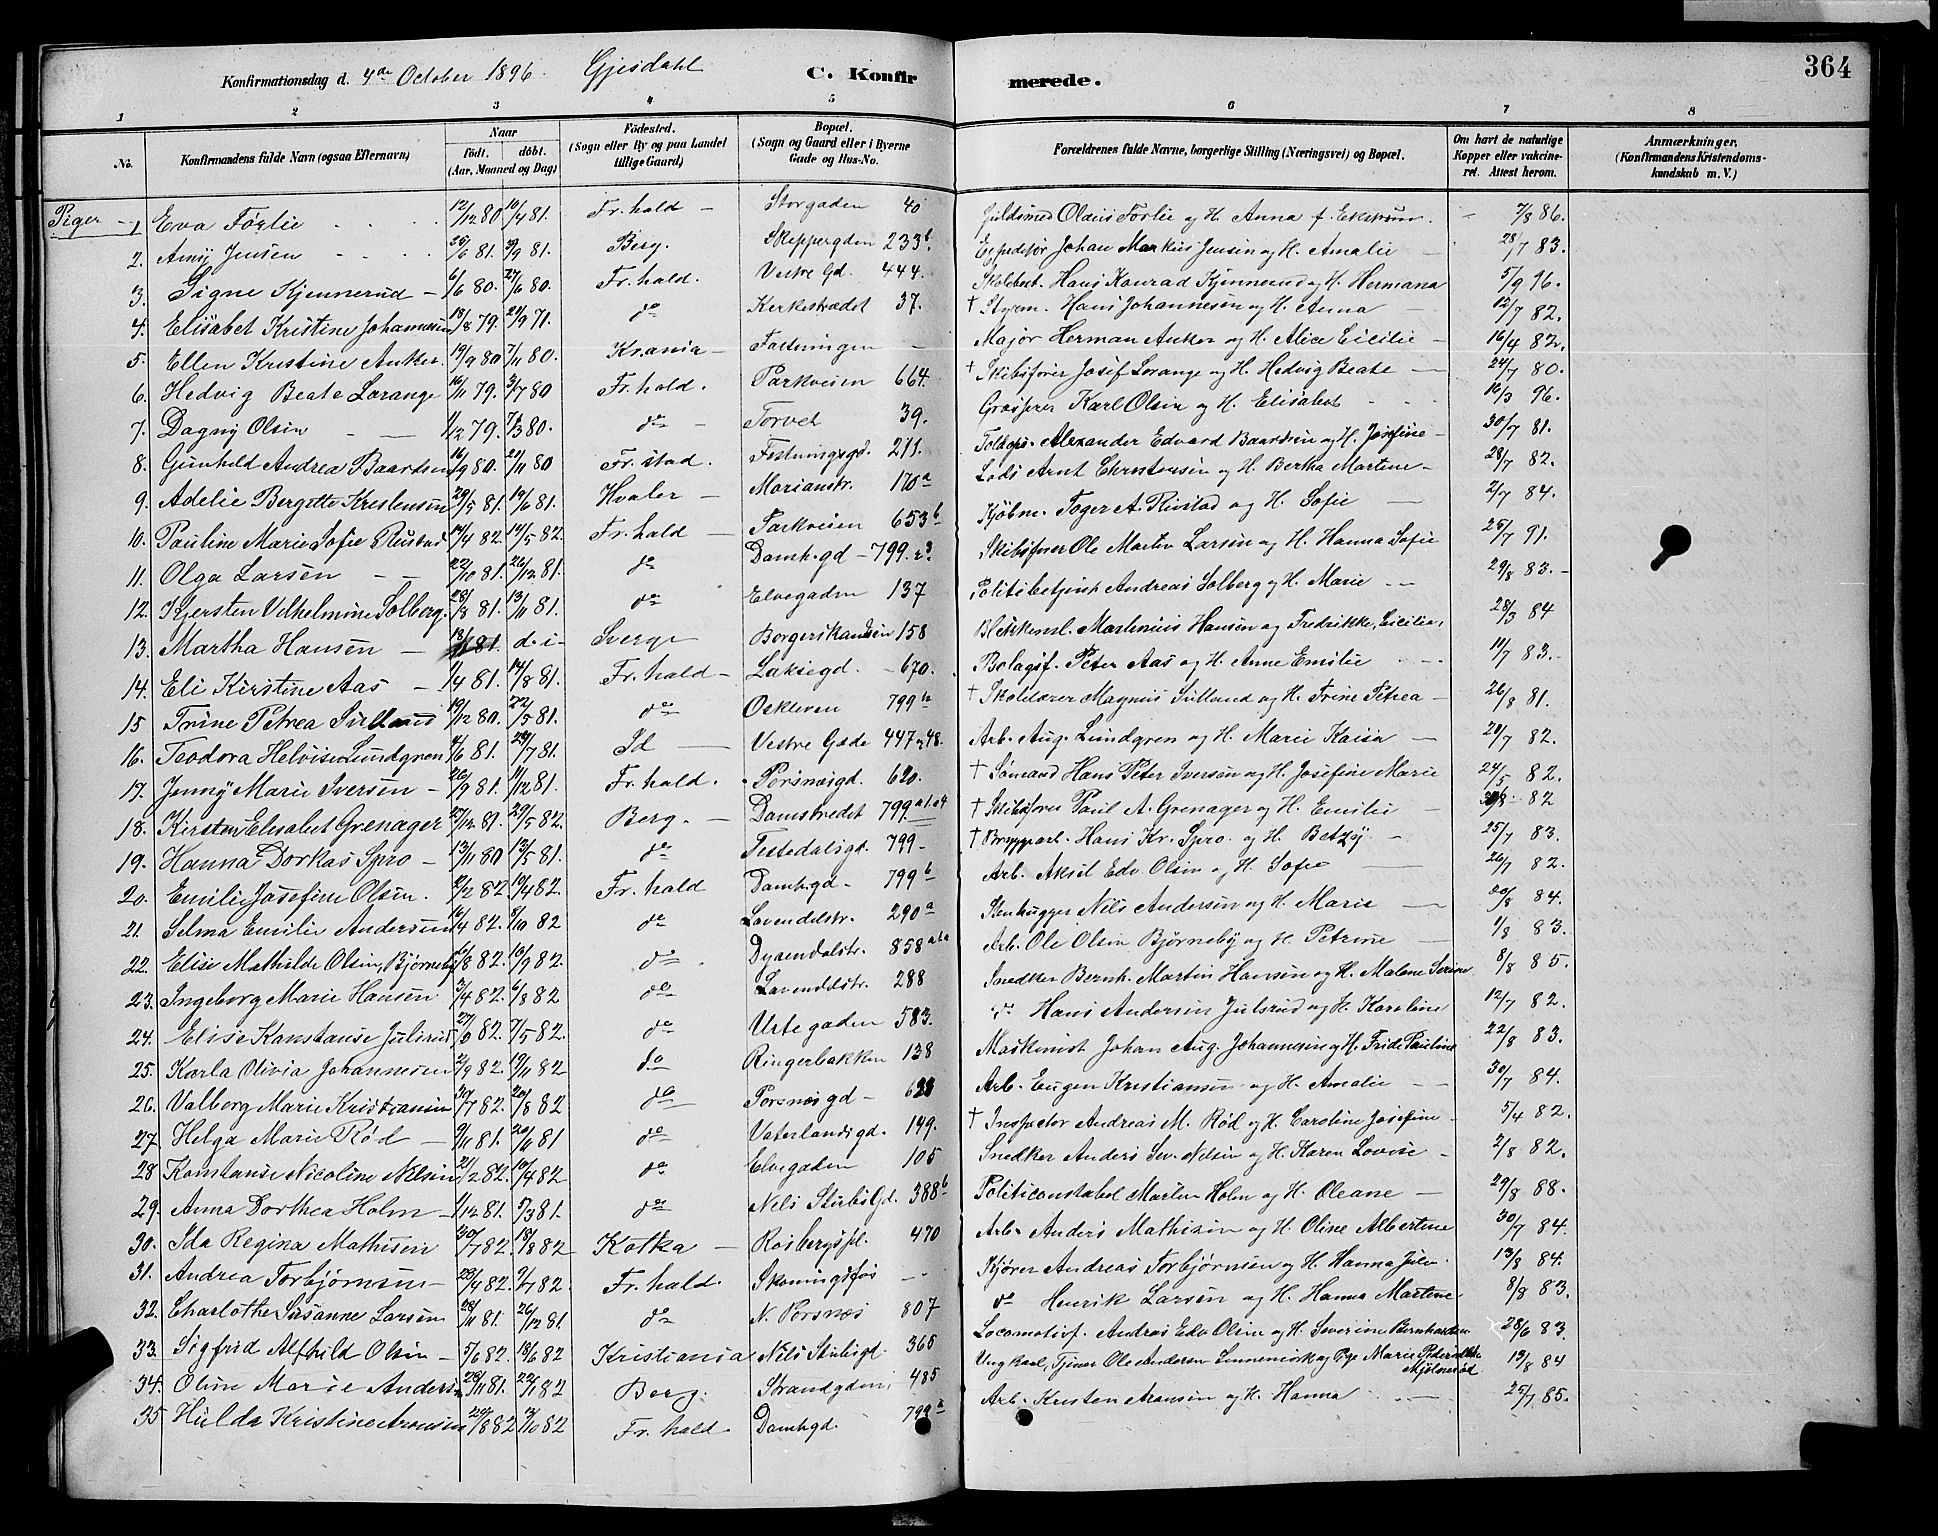 364
Konfirmationsdag d. 4de October 1896. Gjesdahl C. Konfirmerede.
1 2 3 4 5 6 7 8
No. Konfirmandens fulde Navn (ogsaa Efternavn) Naar födt. döbt. (Aar, Maaned og Dag) Födested. (Sogn eller By og paa Landet tillige Gaard) Bopæl. (Sogn og Gaard eller i Byerne Gade og Hus-No. Forældrenes fulde Navne, borgerlige Stilling (Næringsvei) og Bopæl. Om havt de naturlige Kopper eller vaccineret. Attest herom. Anmærkninger. (Konfirmandens Kristendomskundskab m. V.)
Piger - 1. Eva Førlie 12/12 80 10/4 81. Fr.hald - Storgaden 40 Guldsmed Olaus Forlie og H. Anna f. 7/8 86.
2. Amy Jensen 25/6 81. 3/9 81. Berg. Skeppergden 233b. Expeditør Johan Markus Jensen og H. Amalie 28/7 83.
3. Signe Kjennerud - 6/6 80. 27/6 80. Fr.hald. Vestre Gd. 444. Skolebest. Hans Konrad Kjennerud og H. Hermana 5/9 96.
4. Elisabet Kristine Johannesen 18/8 79. 21/9 71. do Kerkestrædet 37. † Styrm. Hans Johannesen og H. Anna 12/7 82.
5. Ellen Kristine Anker. 19/9 80 7/11 80. Krania - Fæstningen - Major Herman Anker og H. Alice Cicilie - 16/4 82.
6. Hedvig Beate Lorange 16/11 79. 3/7 80 Fr.hald. Parkveien 664. † Skibsfører Josif Lorange og H. Hedvig Beate 24/7 80.
7. Dagny Olsen 1/12 79. 7/3 80. do - Torvet 39. Grosserer Karl Olsen og H. Elisabet 16/3 96.
8. Gunhild Andrea Baardsen 16/9 80. 21/11 80 Fr.stad. Festningsgd. 211. Toldops. Alexander Edvard Baardsen og H. Josefine - 30/7 81.
9. Adelie Bergette Kristensen 29/5 81. 19/6 81. Hvaler - Marianstr. 170a Lods Arnt Christensen og H. Bertha Martene - 28/7 82.
10. Pauline Marie Sofie Rustad 14/4 82. 14/5 82. Fr.hald - Parkveien 653b Kjøbm. Toger A. Rustad og H. Sofie 2/7 84.
11. Olga Larsen 22/10 81. 26/12 81. do Damh.gd - 799. Skibsfører Ole Martin Larsen og H. Hanna Sofie 25/7 91.
12. Kjersten Vilhelmine Solberg. 28/8 81. 13/11 81. do Elvegaden 137 Politibetjent Andreas Solberg og H. Marie 29/8 83.
13. Martha Hansen - 81. d. i - Sverge Borgerskandsen 158 Blikkensl. Martinius Hansen og Fredrikke, Cicilie, 28/3 84
14. Eli Kirstine Aas - 1/4 81. 14/8 81. Fr.hald - Laksegd. - 670. Bolagsf. Peter Aas og H. Anne Emilie 11/7 83.
15 Trine Petrea Sulland 19/12 80. 22/5 81. do Oskleven 799b † Skolelærer Magnus Sulland og H. Trine Petrea - 26/8 81.
16. Teodora Helvise Lundgren 4/6 81. 24/7 81. Id Vestre Gade 447 48. Arb. Aug. Lundgren og H. Marie Kaisa - 20/7 82.
17. Jenny Marie Iversen - 26/9 81. 11/12 81. Fr.hald. Porsnæsgd. 620. † Sømand Hans Peter Iversen og H. Josefine Marie 24/5 82.
18. Kirsten Elisabet Grenager 27/12 81. 29/5 82. Berg. - Damstredet 799 † Skibsfører Paul A. Grenager og H. Emilie - 82
19. Hanna Dorkas Spro - 13/11 80 13/5 81. do Testedalsgd. 799 - † Bryggearb. Hans Kr. Spro. og H. Betzy. - 25/7 83.
20. Emilie Josefine Olsen. 2/2 82. 10/4 82. Fr.hald Damh.gd. 799b Arb. Aksel Edv Olsen og H. Sofie 26/7 82.
21. Selma Emilie Andersen 16/4 82. 8/10 82 do Lavendelstr. 290a Stenhugger Nils Andersen og H. Marie 20/8 84.
22. Elise Mathilde Olsen, Bjørneby 82. 10/9 82. do Dyrendalstr. 858 Arb. Ole Olsen Bjørneby og H. Petrine 1/8 83.
23. Ingeborg Marie Hansen 3/4 82. 6/8 82 do Lavendelstr. 288 Snedker Bernh. Martin Hansen og H. Malene 8/8 85.
24. Elise Konstanse Julsrud, 82. 7/5 82. do Urtegaden 583. do Hans Andersen Julsrud og H. Karoline 12/7 82.
25. Karla Olivia Johannesen 2/9 82. 19/11 82 do Ringerbakken 138 Maskinist Johan Aug. Johannesen og H. Fride Pauline 22/8 83.
26. Valborg Marie Kristiansen 30/7 82. 20/8 82 do Porsnæsgd - 628 Arb. Eugen Kristiansen og H. Amalie 30/7 84.
27. Helga Marie Rød - 9/11 81. 20/11 81 do Vaterlandsgd. 149. † Inspector Andreas M. Rød og H. Caroline Josefine - 5/4 82.
28 Konstanse Nicoline Nelsen 21/2 82. 10/4 82 do Elvegaden 105 Snedker Anders Nelsen og H. Karen Lovise - 2/8 82.
29. Anna Dorthea Holm - 1/12 81. 5/3 81. do Nils Stubs Gd. 388b Politiconstabel Martin Holm og H. Oleane - 29/8 88.
30. Ida Regina Mathisen 30/7 82. 18/8 82 Kotka - Rosbergspl. 470 Arb. Anders Mathisen og H. Oline Albertine 30/7 84.
31. Andrea Torbjørnsen - 23/4 82. 9/7 82. Fr.hald. Skoningsfos Kjører Andreas Torbjørnsen og H. Hanna Jule. 13/8 84.
32. Charlothe Susanne Larsen 28/11 81. 26/12 81. do N. Porsnæs 807 do Henrik Larsen og H. Hanna Martine 8/8 83.
33. Sigfrid Alfhild Olsen - 5/6 82. 18/6 82 Kristiania Nils Stubsgd. 365 Locomotivf. Andras Edv Olsen og H. Severine Bernhardine 28/6 83.
34. Oline Marie Andersen 28/11 81. 22/1 82 Berg. Strandgden 485 Ungkarl, Tjener Ole Andersen og Pige Marie 13/8 84
35 Hulda Kristine Aronsen 20/8 82 2/10 82 Fr.hald. Damh.gd. 799a Arb. Kristen Aronsen og H. Hanna 25/7 85.